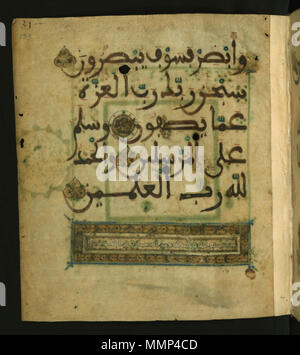 وأبصر فسوف يبصرون
سبحن ربك رب العزة
عما يصفون وسلم
على المرسلين والحمد
لله رب العلمين
MMP4CD